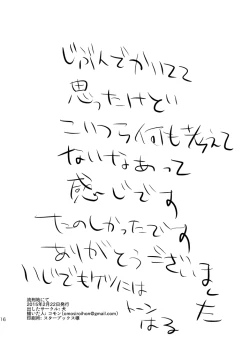 じぶんでかいてて
思ったけどい
こいつら何も考えて
ないなあって
感じです
たのしかったです
ありがとうございました
いじでもケツには
トーン
はる
流刑地にて
2015年2月22日発行
出したサークル: 犬
描いた人: コモン(omosiroihon@gmail.com)
印刷所: スターブックス様
16